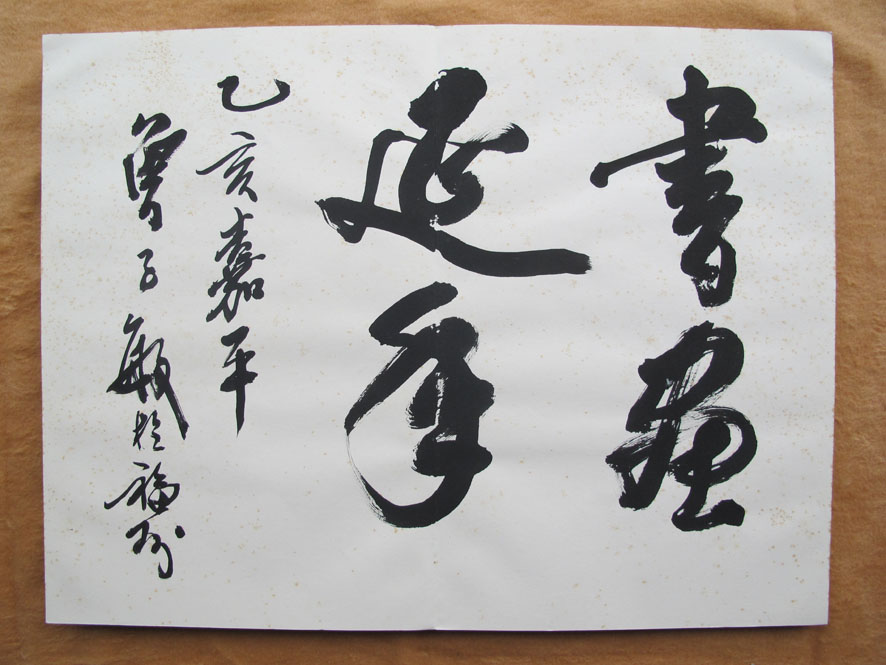 書畫
延年
乙亥嘉平
曾子敏於福州